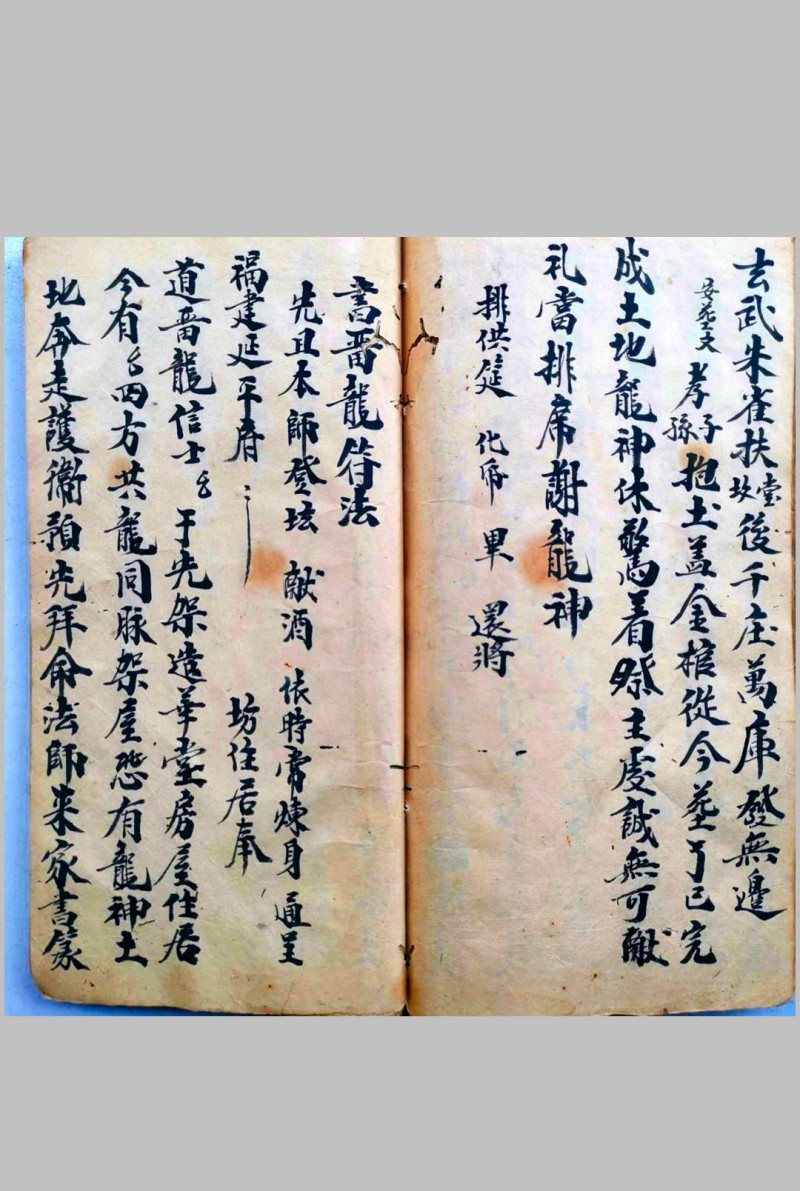 玄武朱雀扶堂坟後千庄萬庫發無邊
安葬文 孝子孫抱土盖金棺從今葬了已完
成土地龍神休驚着祭主虔誠無可献
礼當排席謝龍神
排供筵 化帋 畢 還將
書番龍符法
先且本師登坛 献酒 依時常煉身 通呈
福建延平府 坊住居奉
道番龍信士 于先架造華堂房屋住居
今有 四方共龍同脉架屋恐有龍神土
地奔走護衛預先拜命法師来家書篆